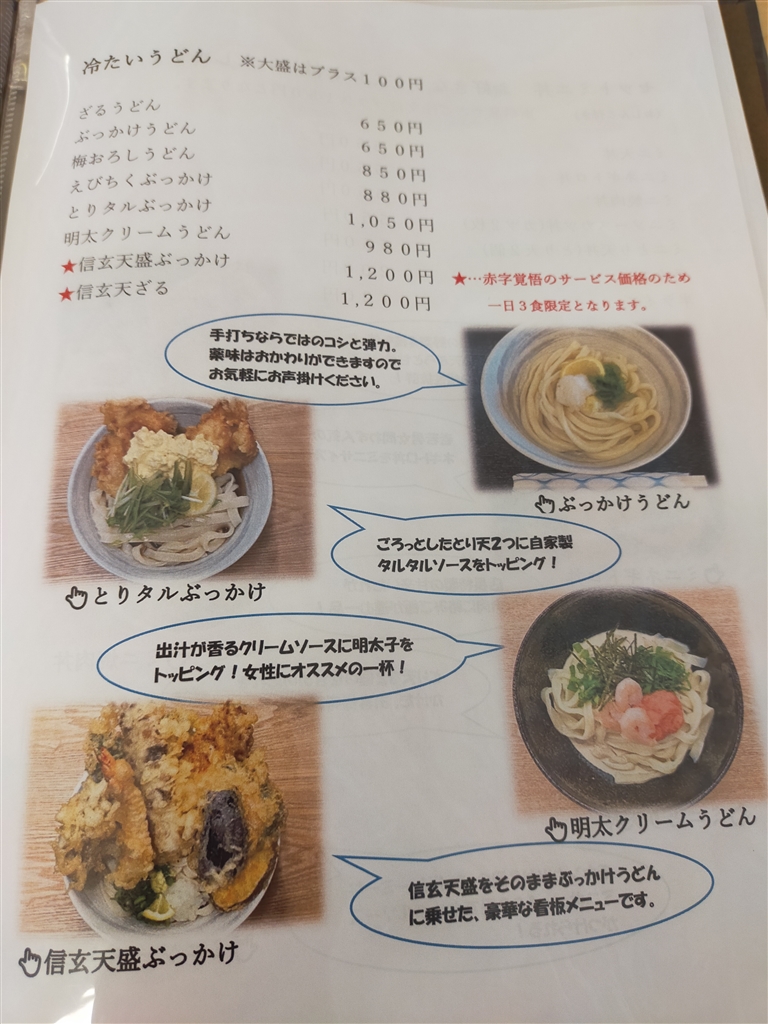 冷たいうどん ※大盛はプラス１００円
ざるうどん ６５０円
ぶっかけうどん ６５０円
梅おろしうどん ８５０円
えびちくぶっかけ ８８０円
とりタルぶっかけ １,０５０円
明太クリームうどん ９８０円
★信玄天盛ぶっかけ １,２００円
★信玄天ざる １,２００円
★…赤字覚悟のサービス価格のため
一日３食限定となります。
手打ちならではのコシと弾力。
薬味はおかわりができますので
お気軽にお声掛けください。
ぶっかけうどん
ごろっとしたとり天2つに自家製
タルタルソースをトッピング！
とりタルぶっかけ
出汁が香るクリームソースに明太子を
トッピング！女性にオススメの一杯！
明太クリームうどん
信玄天盛をそのままぶっかけうどん
に乗せた、豪華な看板メニューです。
信玄天盛ぶっかけ